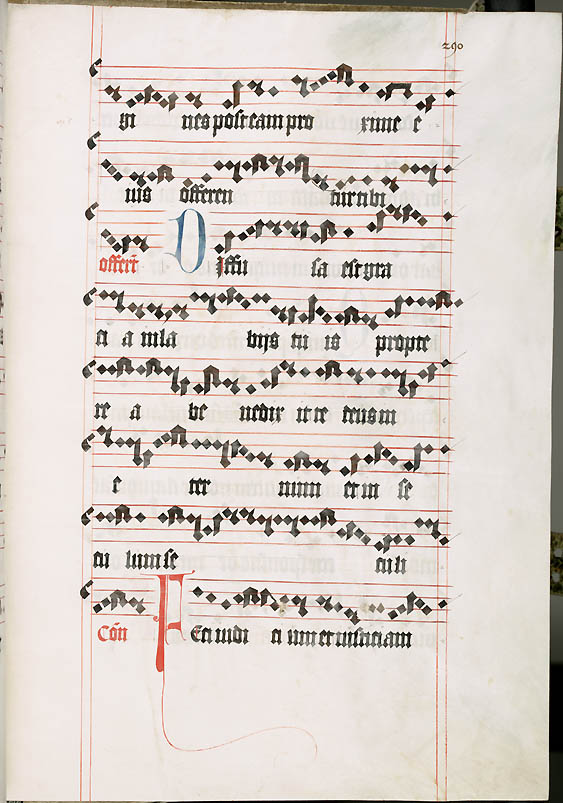 290
gi nes post eam pro xime e
ius offeren tur tibi
offert̄ Diffu sa est gra
ci a in la bijs tu is propte
re a be nedix it te deus in
e ter num et in se
cu lum se culi
Cōn Feci iudi ci um et iusticiam